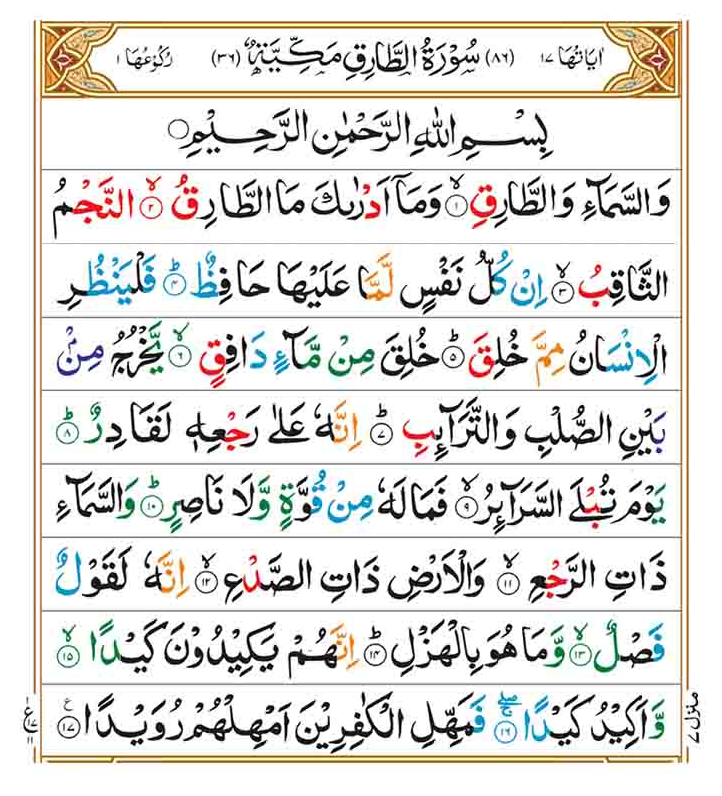 اٰيَاتُهَا ١٧ (٨٦) سُوْرَةُ الطَّارِقِ مَكِّيَّةٌ (٣٦) رُكُوْعُهَا ١
بِسْمِ اللّٰهِ الرَّحْمٰنِ الرَّحِيْمِ
وَالسَّمَآءِ وَالطَّارِقِ ۙ﴿١﴾ وَمَآ اَدْرٰىكَ مَا الطَّارِقُ ۙ﴿٢﴾ النَّجْمُ
الثَّاقِبُ ۙ﴿٣﴾ اِنْ كُلُّ نَفْسٍ لَّمَّا عَلَيْهَا حَافِظٌ ؕ﴿٤﴾ فَلْيَنْظُرِ
الْاِنْسَانُ مِمَّ خُلِقَ ؕ﴿٥﴾ خُلِقَ مِنْ مَّآءٍ دَافِقٍ ۙ﴿٦﴾ يَّخْرُجُ مِنْۢ
بَيْنِ الصُّلْبِ وَالتَّرَآئِبِ ؕ﴿٧﴾ اِنَّهٗ عَلٰى رَجْعِهٖ لَقَادِرٌ ؕ﴿٨﴾
يَوْمَ تُبْلَى السَّرَآئِرُ ۙ﴿٩﴾ فَمَا لَهٗ مِنْ قُوَّةٍ وَّلَا نَاصِرٍ ؕ﴿١٠﴾ وَالسَّمَآءِ
ذَاتِ الرَّجْعِ ۙ﴿١١﴾ وَالْاَرْضِ ذَاتِ الصَّدْعِ ۙ﴿١٢﴾ اِنَّهٗ لَقَوْلٌ
فَصْلٌ ۙ﴿١٣﴾ وَّمَا هُوَ بِالْهَزْلِ ؕ﴿١٤﴾ اِنَّهُمْ يَكِيْدُوْنَ كَيْدًا ۙ﴿١٥﴾
وَّاَكِيْدُ كَيْدًا ۚۖ﴿١٦﴾ فَمَهِّلِ الْكٰفِرِيْنَ اَمْهِلْهُمْ رُوَيْدًا ﴿١٧﴾ ع
منزل ٧
ع ١٧ ١١